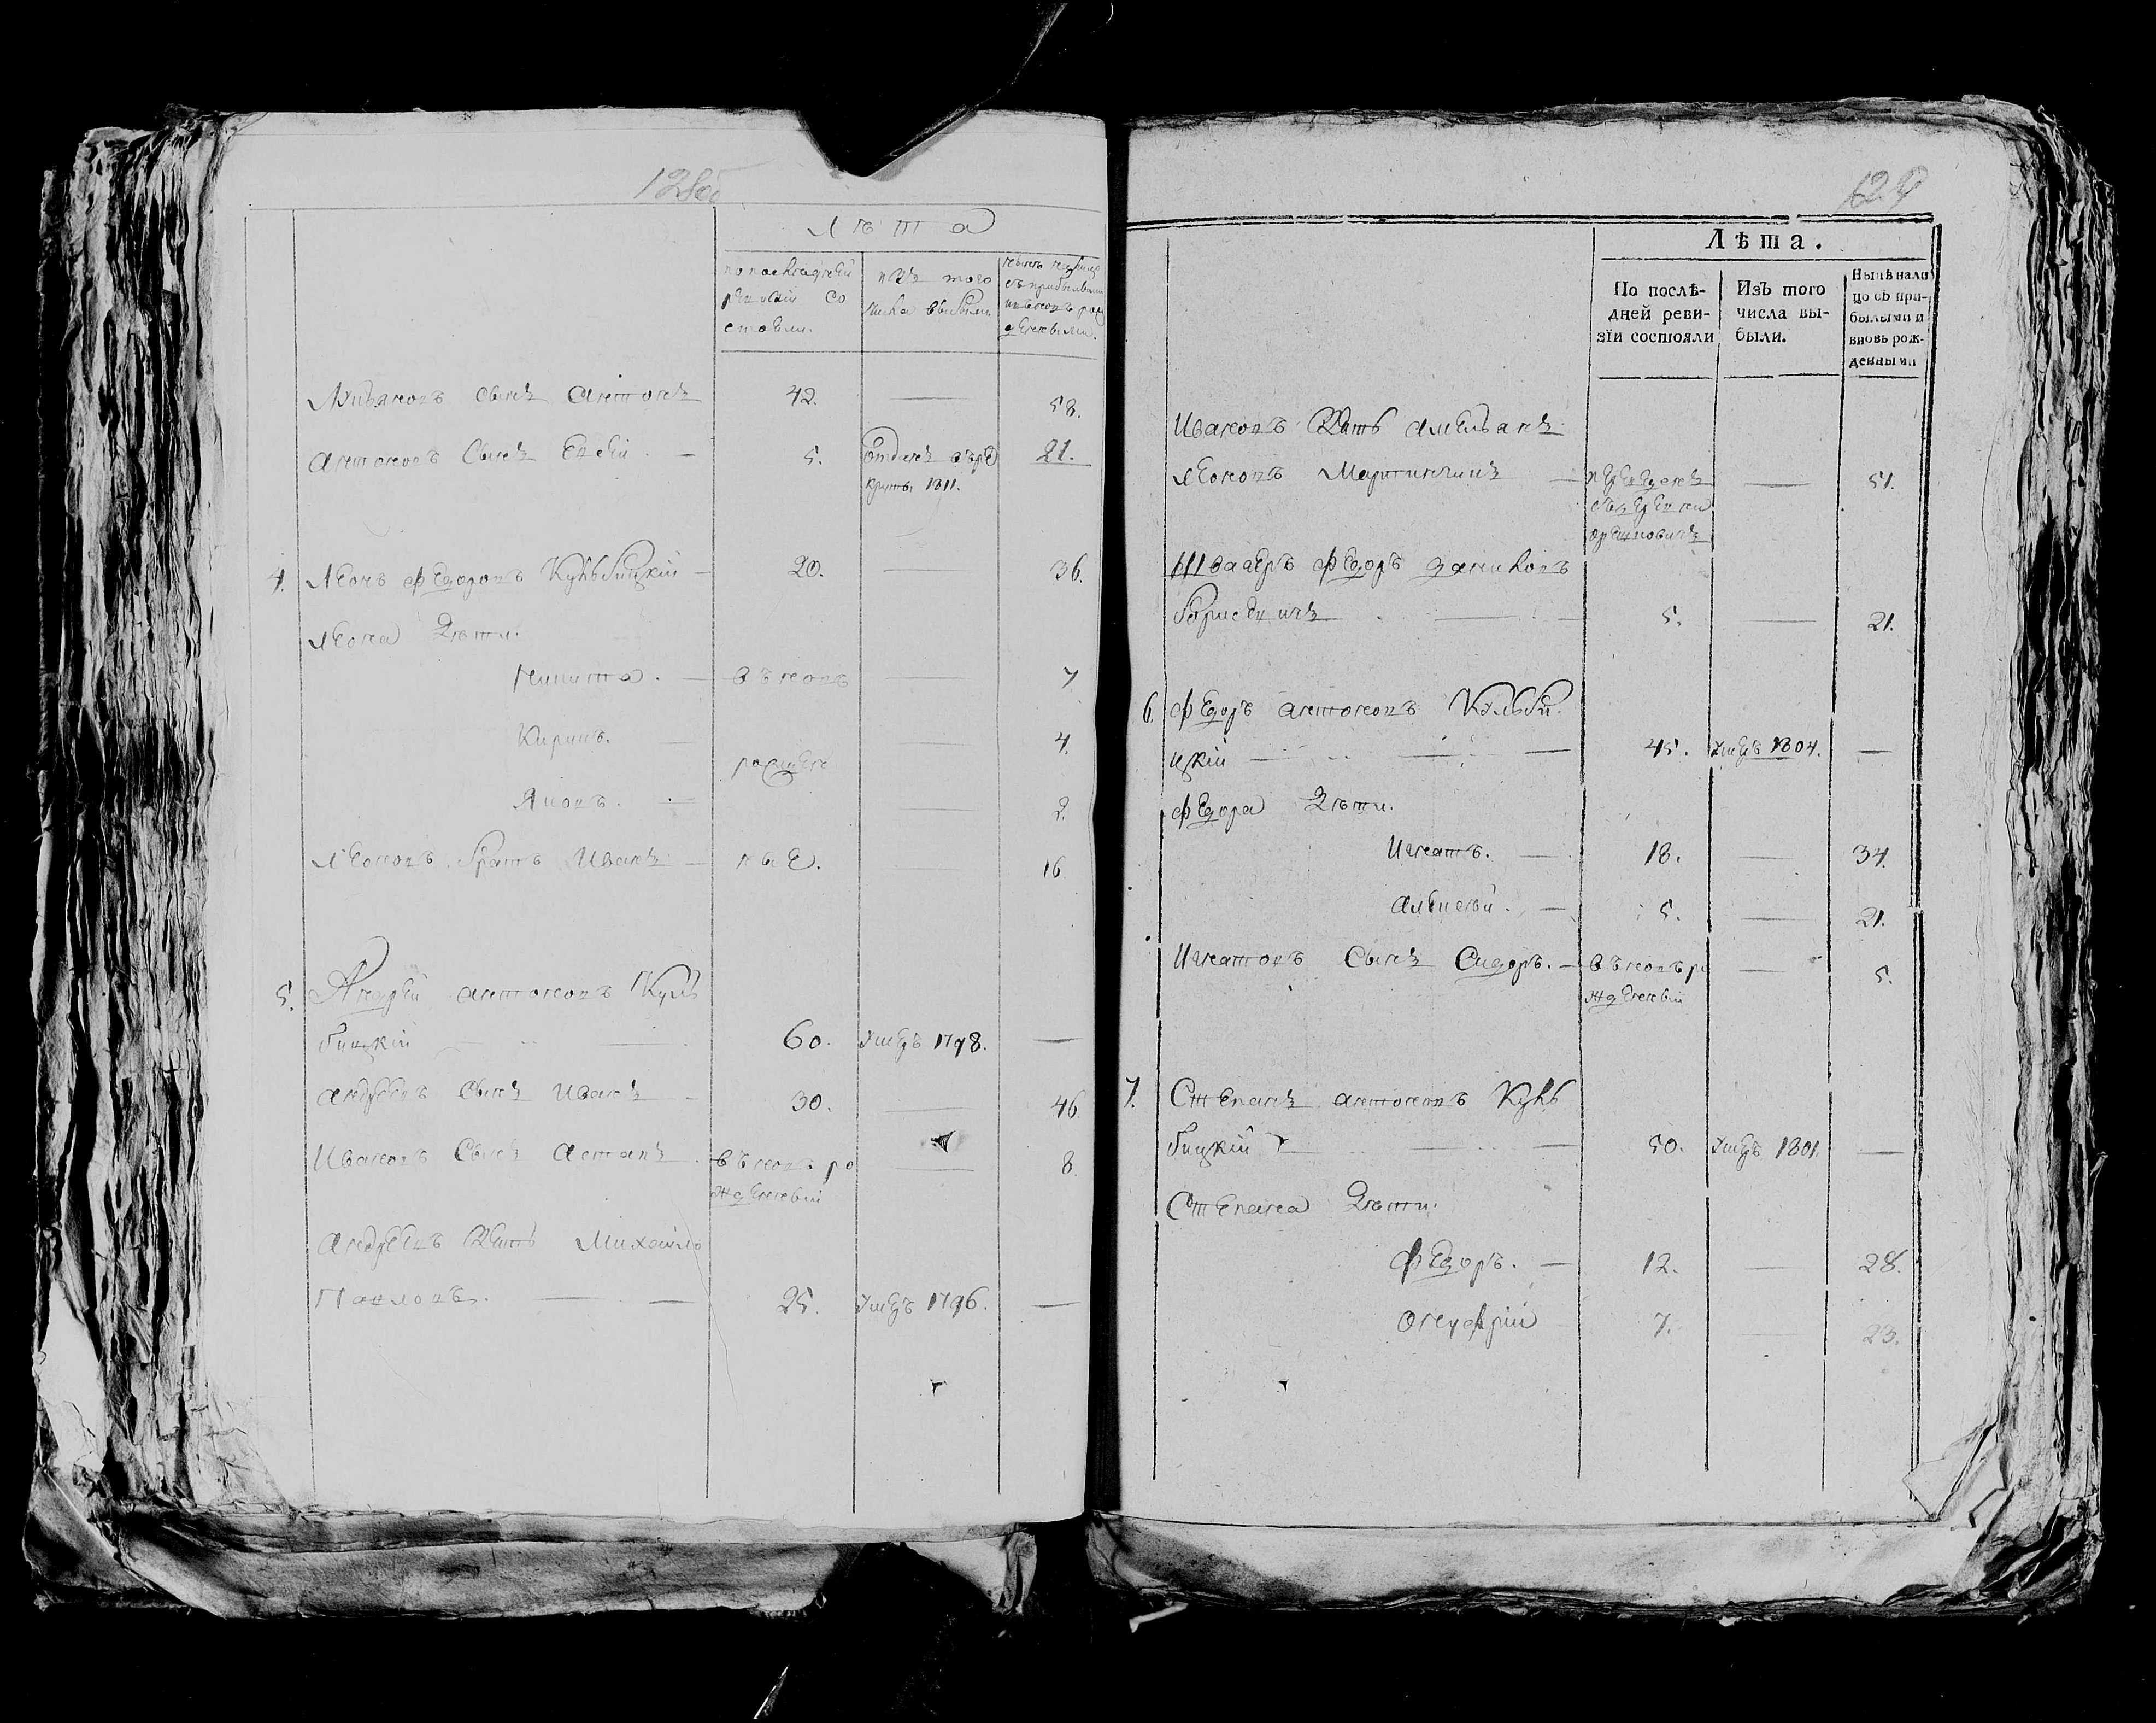 128об
Лѣта
по последней ревизіи состояли.
изъ того числа выбыли
ныне налицо съ прибылыми и вновь рожденными.
сынъ Антонъ 42. — 58.
Антоновъ сынъ Евсей. — 5. отданъ въ ре 21.
круты 1811.
4. Леонъ Федоровъ Кульбицкий — 20. — 36.
Леона дѣти.
Никита. — вновь — 7
Кирилъ. — — 4.
рожден
Яковъ. — — 2.
Леоновъ братъ Иванъ — ные. — 16
5. Андрей Антоновъ Куль
бицкий — 60. умеръ 1798. —
Андреевъ сынъ Иванъ — 30. — 46.
Ивановъ сынъ Астапъ — вновь ро — 8.
жденный
Андреевъ зять Михайло
Павловъ. — 25. умеръ 1796. —
129
Лѣта.
По послѣдней ревизїи состояли
Изъ того числа выбыли.
Нынѣ налицо съ прибылыми и вновь рожденными
Ивановъ зять Амельянъ
Леоновъ Мартинчикъ — переведенъ — 51.
съ деревни
Швагеръ Федоръ Даниловъ
Борисевичъ — 5. — 21.
6. Федоръ Антоновъ Кульби
цкий — 45. умеръ 1804. —
Федора дѣти.
Игнатъ. — 18. — 34.
Алексей. — 5. — 21.
Игнатовъ сынъ Сидоръ. — вновь ро — 5.
жденный
7. Степанъ Антоновъ Куль
бицкий — 50. умеръ 1801. —
Степана дѣти.
Федоръ. — 12. — 28.
Онуфрий 7. — 23.